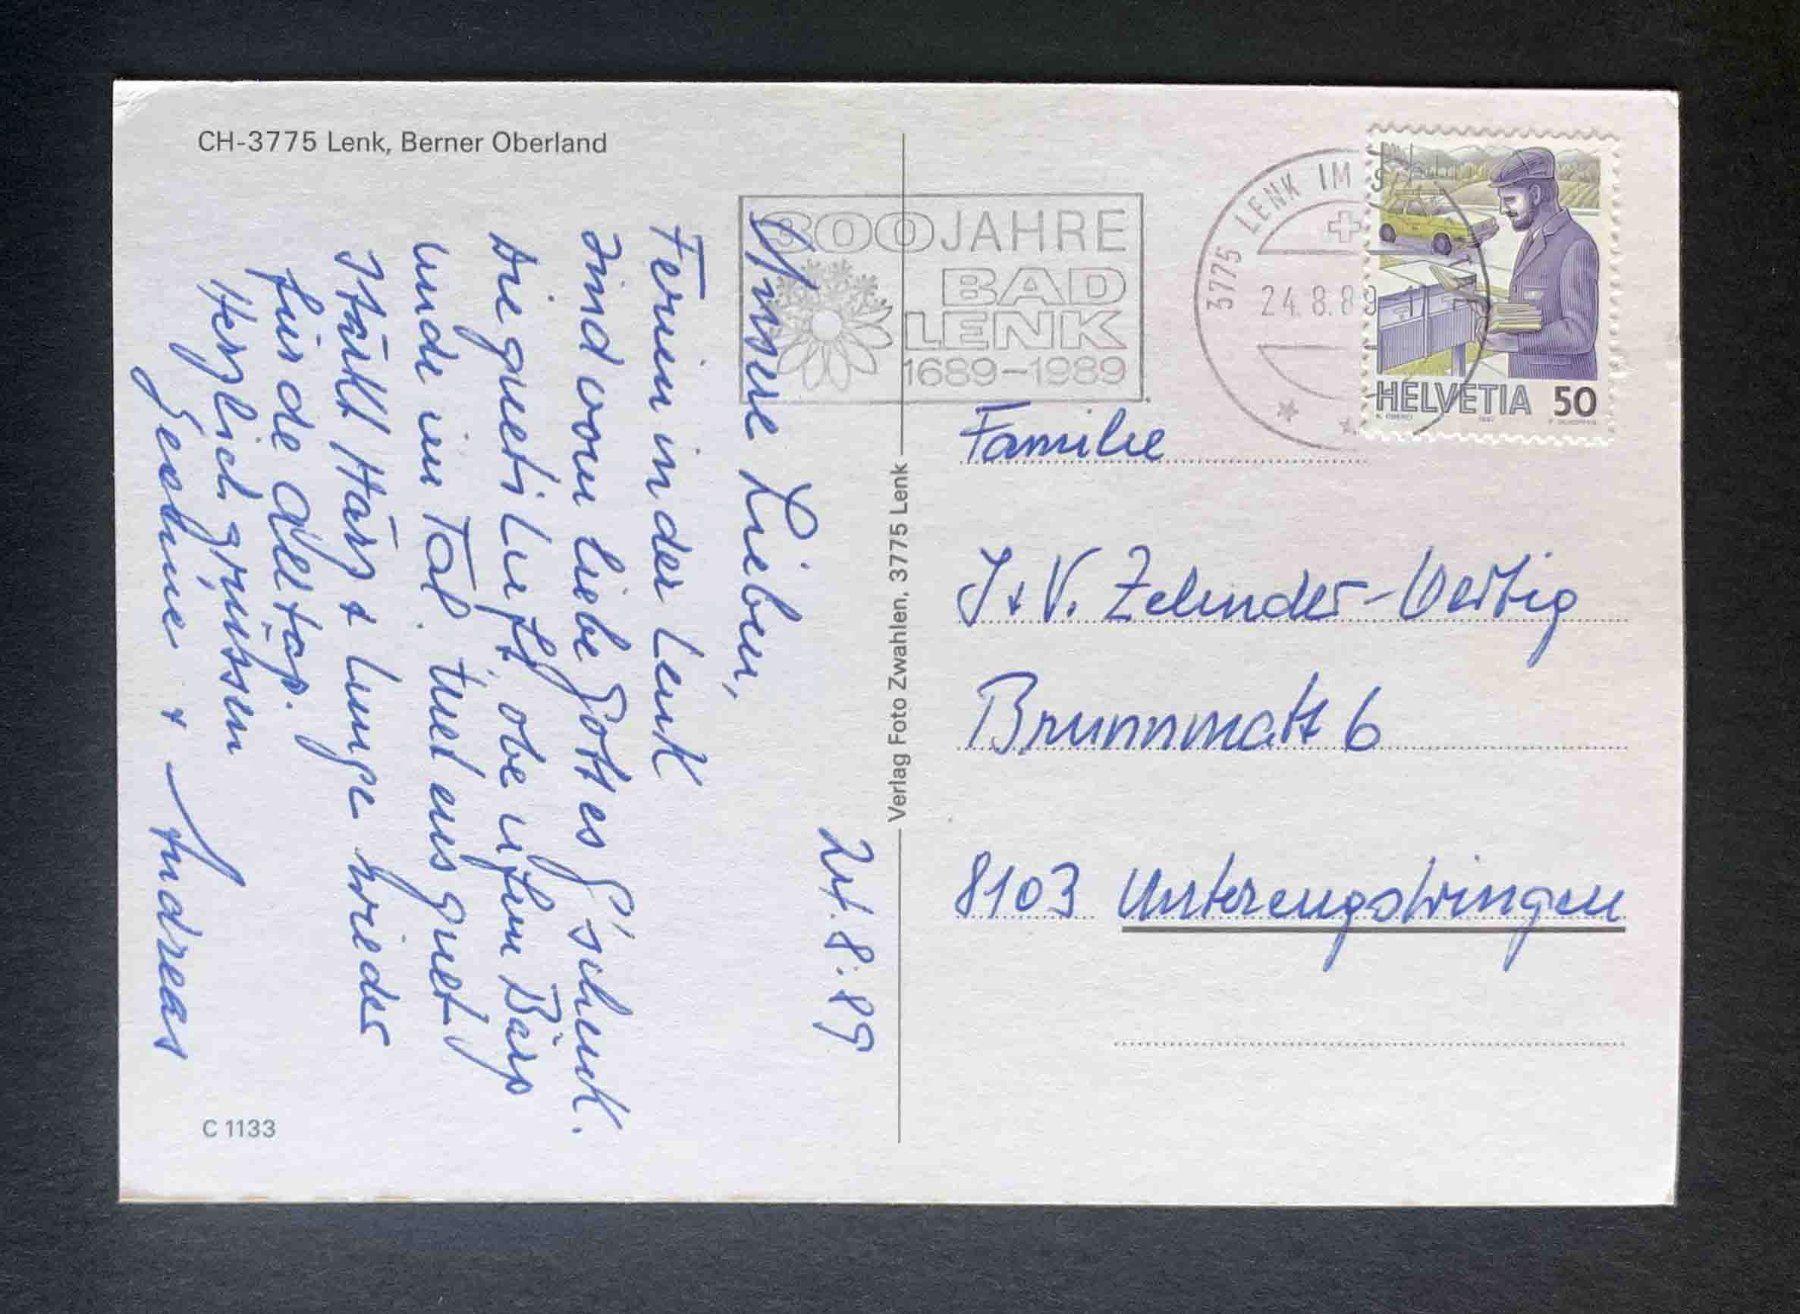 CH-3775 Lenk, Berner Oberland
24.8.89
Unsere Lieben,
Ferien in der Lenk
sind vom liebe Gott es G'schenk.
Die gueti Luft, obe ufem Bärg
unde im Tal. tuet eus guet
stärkt Härz + Lunge wieder
für de Alltag.
Herzlich grüssen
+ Andreas
C 1133
Verlag Foto Zwahlen, 3775 Lenk
300 JAHRE
BAD
LENK
1689-1989
3775 LENK IM S
24.8.89
HELVETIA 50
Familie
J + V. Zehnder-Wertig
Brunnmatt 6
8103 Unterengstringen